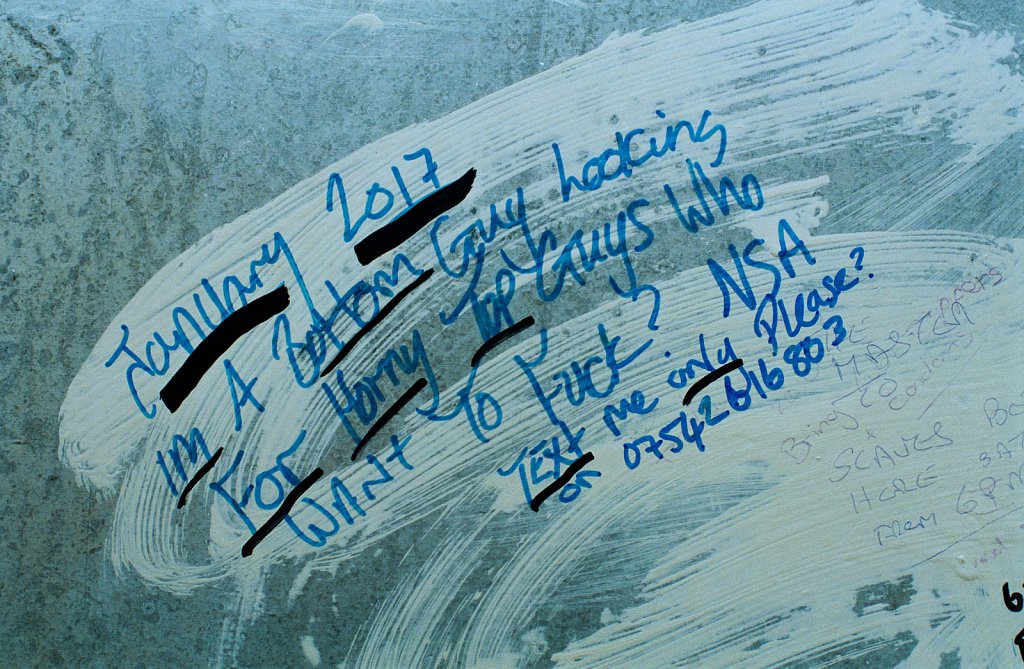 January 2017
IM A Bottom Guy Looking
For Horny Top Guys Who
WANt To Fuck? NSA
Text me only Please?
on 07542616803
MASTERS
Bring to
SLAVES
HERE SAT
From 6PM